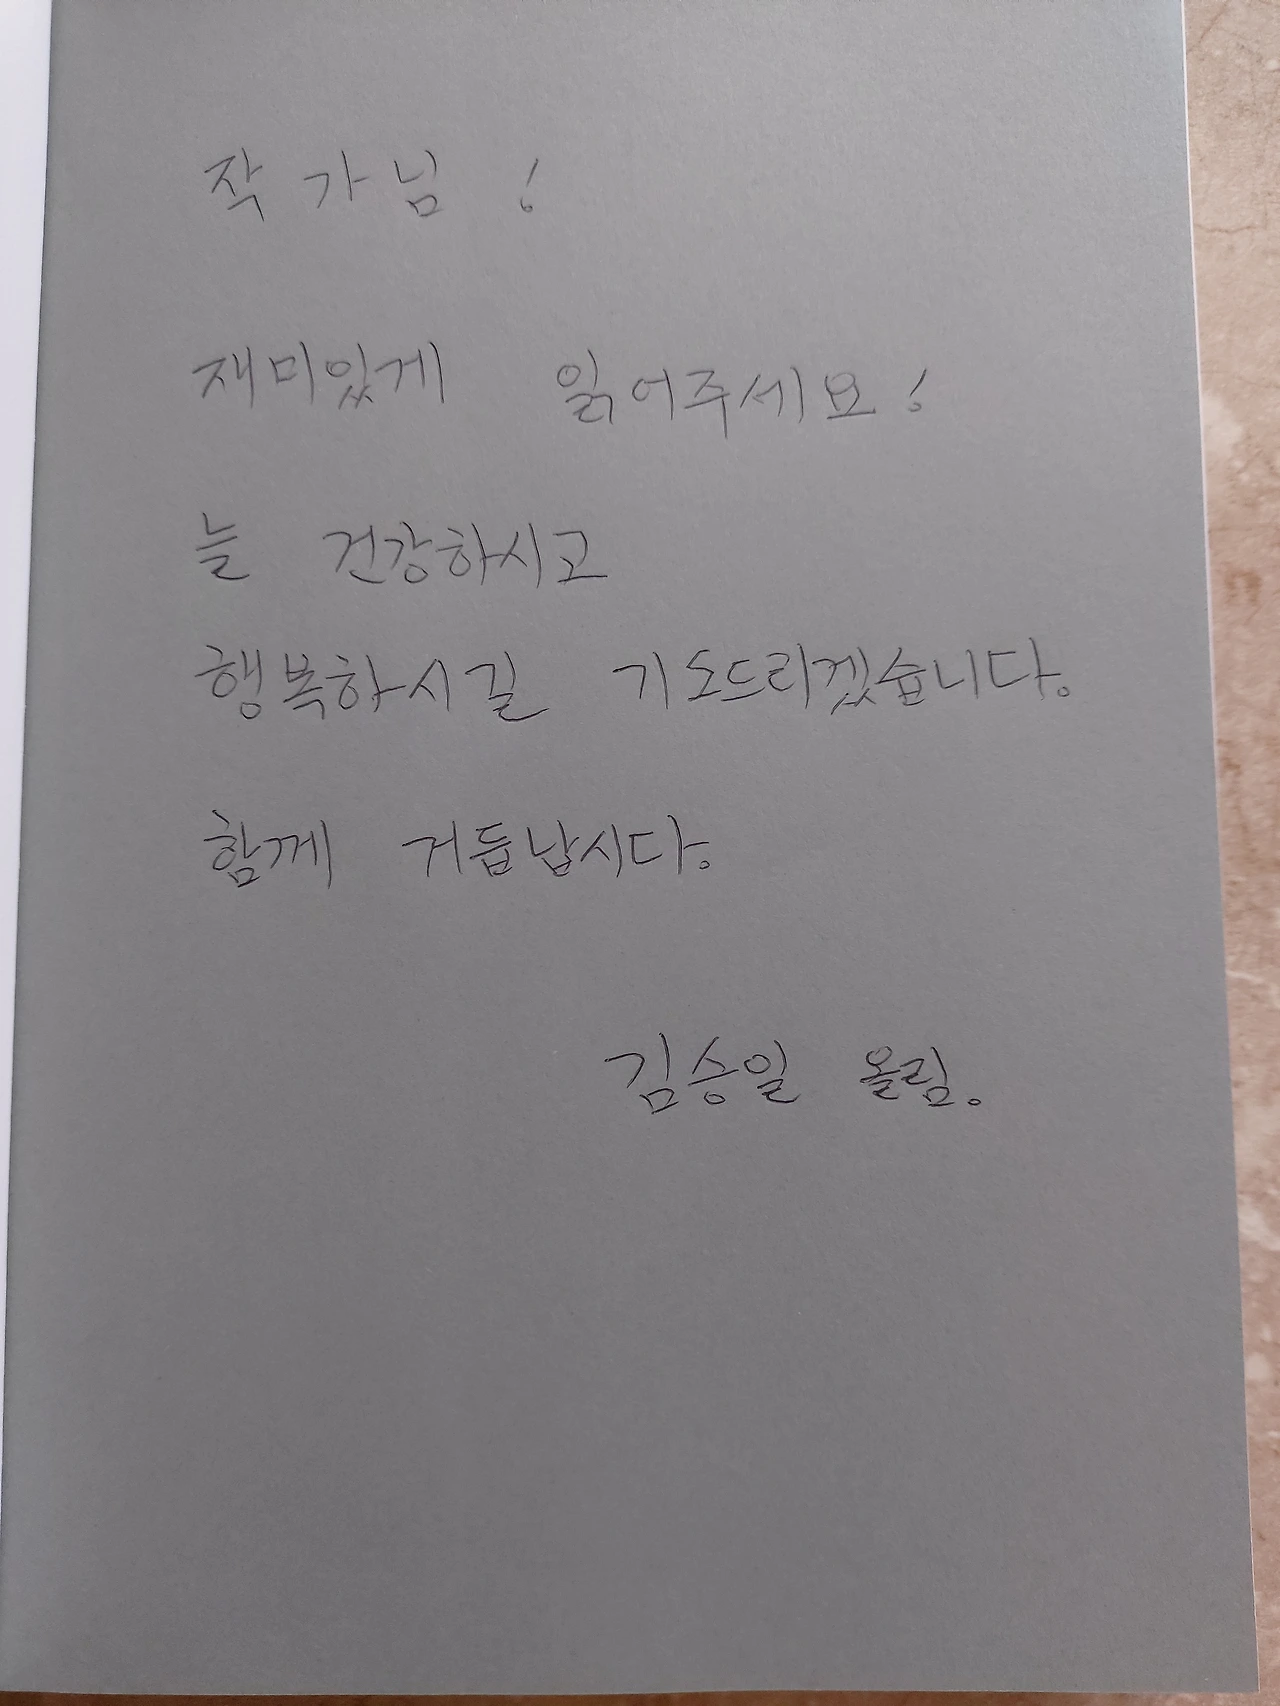 작가님!
재미있게 읽어주세요!
늘 건강하시고
행복하시길 기도드리겠습니다.
함께 거듭납시다.
김승일 올림.